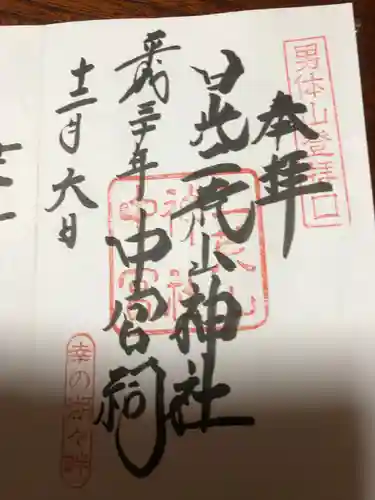 男体山登拝口
奉拝
日光二荒山神社
中宮祠
平成三十年
十二月六日
幸の湖々畔